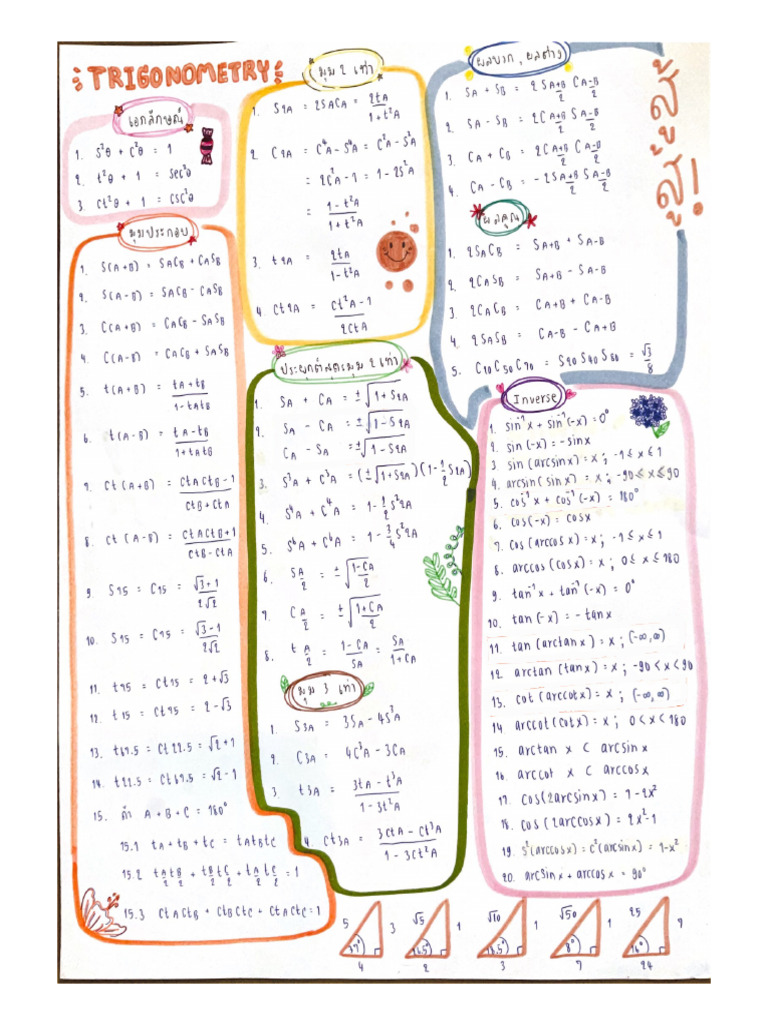 TRIGONOMETRY
เอกลักษณ์
1. S²θ + C²θ = 1
2. t²θ + 1 = sec²θ
3. ct²θ + 1 = csc²θ
มุมประกอบ
1. S(A+B) = SACB + CASB
2. S(A-B) = SACB - CASB
3. C(A+B) = CACB - SASB
4. C(A-B) = CACB + SASB
5. t(A+B) = tA+tB / 1-tAtB
6. t(A-B) = tA-tB / 1+tAtB
7. ct(A+B) = ctActB-1 / ctB+ctA
8. ct(A-B) = ctActB+1 / ctB-ctA
9. S75 = C15 = √3+1 / 2√2
10. S15 = C75 = √3-1 / 2√2
11. t75 = ct15 = 2+√3
12. t15 = ct75 = 2-√3
13. t67.5 = ct22.5 = √2+1
14. t22.5 = ct67.5 = √2-1
15. ถ้า A+B+C = 180°
15.1 tA+tB+tC = tAtBtC
15.2 tA/2 tB/2 + tB/2 tC/2 + tA/2 tC/2 = 1
15.3 ctActB + ctBctC + ctActC = 1
มุม 2 เท่า
1. S2A = 2SACA = 2tA / 1+t²A
2. C2A = C⁴A-S⁴A = C²A-S²A
= 2C²A-1 = 1-2S²A
= 1-t²A / 1+t²A
3. t2A = 2tA / 1-t²A
4. ct2A = ct²A-1 / 2ctA
ประยุกต์สุดะมุม 2 เท่า
1. SA + CA = ±√1+S2A
2. SA - CA = ±√1-S2A
CA - SA = ±√1-S2A
3. S³A + C³A = (±√1+S2A)(1-1/2 S2A)
4. S⁴A + C⁴A = 1-1/2 S²2A
5. S⁶A + C⁶A = 1-3/4 S²2A
6. S A/2 = ±√1-CA / 2
7. C A/2 = ±√1+CA / 2
8. t A/2 = 1-CA / SA = SA / 1+CA
มุม 3 เท่า
1. S3A = 3SA-4S³A
2. C3A = 4C³A-3CA
3. t3A = 3tA-t³A / 1-3t²A
4. ct3A = 3ctA-ct³A / 1-3ct²A
ผลบวก, ผลต่าง
1. SA + SB = 2S A+B/2 C A-B/2
2. SA - SB = 2C A+B/2 S A-B/2
3. CA + CB = 2C A+B/2 C A-B/2
4. CA - CB = -2S A+B/2 S A-B/2
ผลคูณ
1. 2SACB = SA+B + SA-B
2. 2CASB = SA+B - SA-B
3. 2CACB = CA+B + CA-B
4. 2SASB = CA-B - CA+B
5. C10C50C70 = S20S40S80 = √3/8
สู้
สู้
สู้!
Inverse
1. sin⁻¹x + sin⁻¹(-x) = 0°
2. sin(-x) = -sinx
3. sin(arcsinx) = x; -1≤x≤1
4. arcsin(sinx) = x; -90≤x≤90
5. cos⁻¹x + cos⁻¹(-x) = 180°
6. cos(-x) = cosx
7. cos(arccosx) = x; -1≤x≤1
8. arccos(cosx) = x; 0≤x≤180
9. tan⁻¹x + tan⁻¹(-x) = 0°
10. tan(-x) = -tanx
11. tan(arctanx) = x; (-∞,∞)
12. arctan(tanx) = x; -90<x<90
13. cot(arccotx) = x; (-∞,∞)
14. arccot(cotx) = x; 0<x<180
15. arctan x < arcsinx
16. arccot x < arccosx
17. cos(2arcsinx) = 1-2x²
18. cos(2arccosx) = 2x²-1
19. s²(arccosx) = c²(arcsinx) = 1-x²
20. arcsinx + arccosx = 90°
5 3 37° 4
√5 1 26.5° 2
√10 1 18.5° 3
√50 1 8° 7
25 7 16° 24